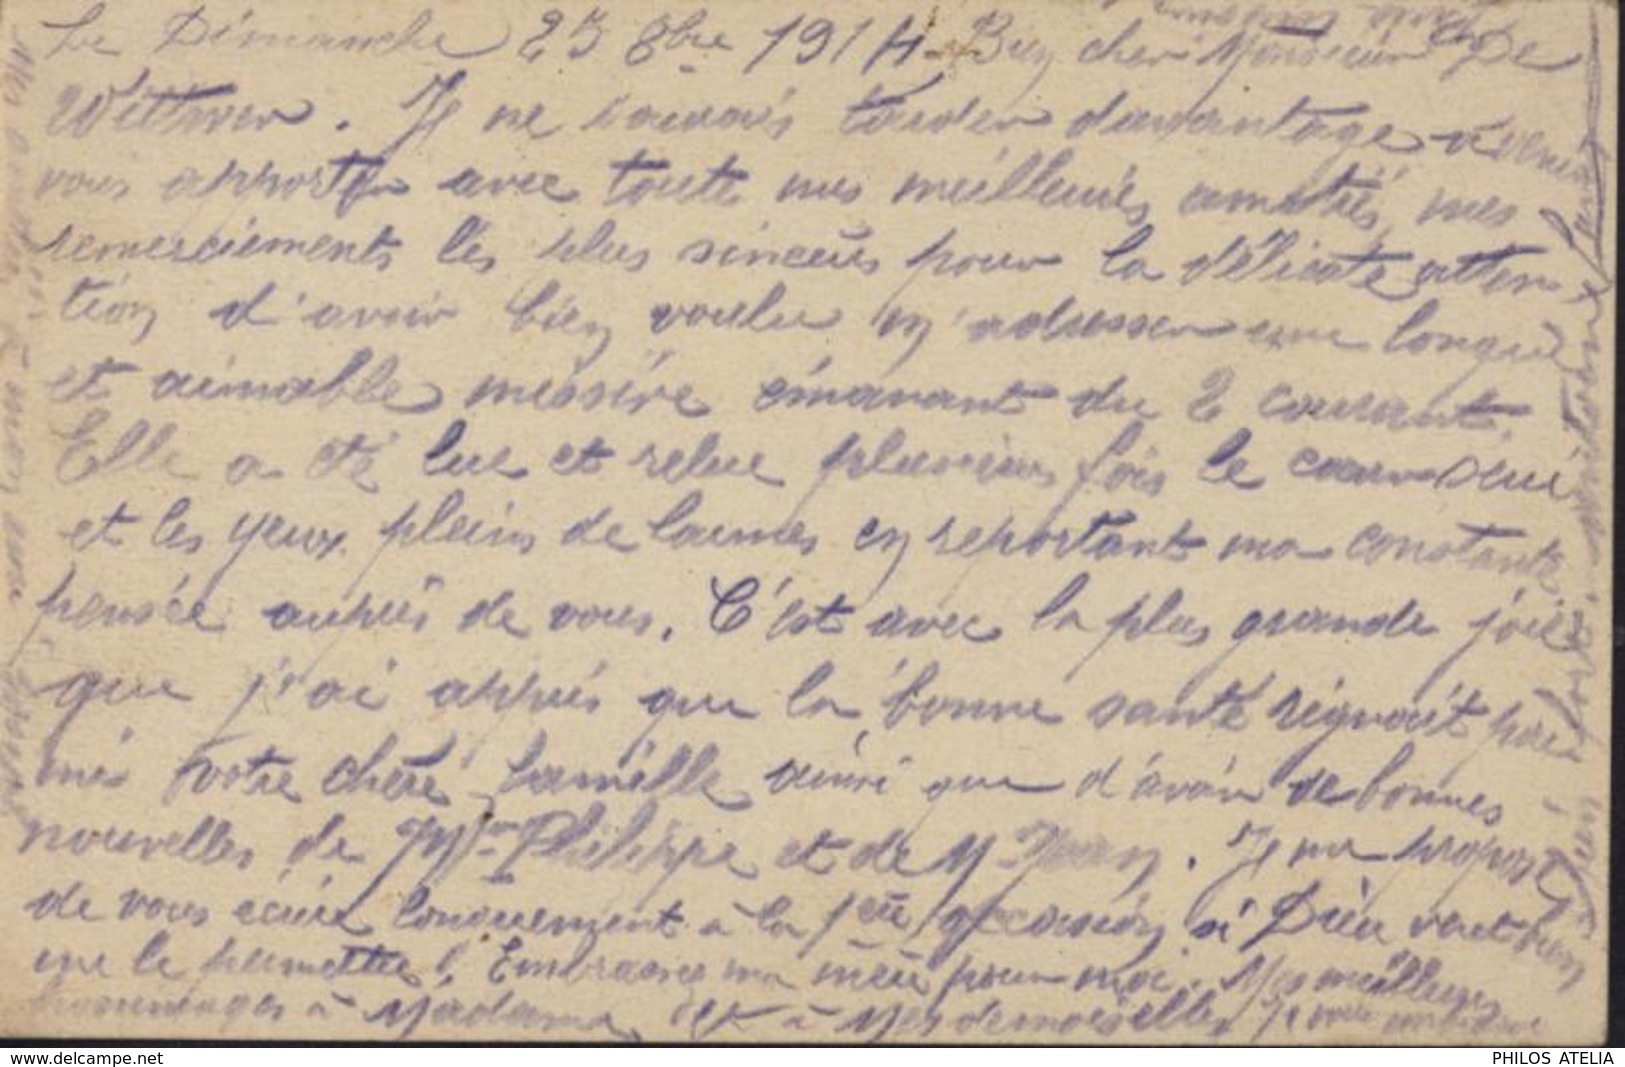 Le Dimanche 25 8bre 1914. Bien cher Monsieur De
Wittmer. Je ne saurais tarder davantage à venir
vous apporter avec toute mes meilleures amitiés, mes
remerciements les plus sincères pour la délicate atten
tion d'avoir bien voulu m'adresser une longue
et aimable missive émanant du 2 courant.
Elle a été lue et relue plusieurs fois le cœur
et les yeux pleins de larmes en reportant ma constante
pensée auprès de vous. C'est avec la plus grande joie
que j'ai appris que la bonne santé régnait par
mi votre chère famille ainsi que d'avoir de bonnes
nouvelles de Mr Philippe et de Mr Jean. Je me propose
de vous écrire longuement à la 1ère occasion si Dieu veut bien
me le permettre! Embrassez ma mère pour moi. Mes meilleurs
hommages à Madame, et à Mesdemoiselles. Je vous
www.delcampe.net
PHILOS ATELIA